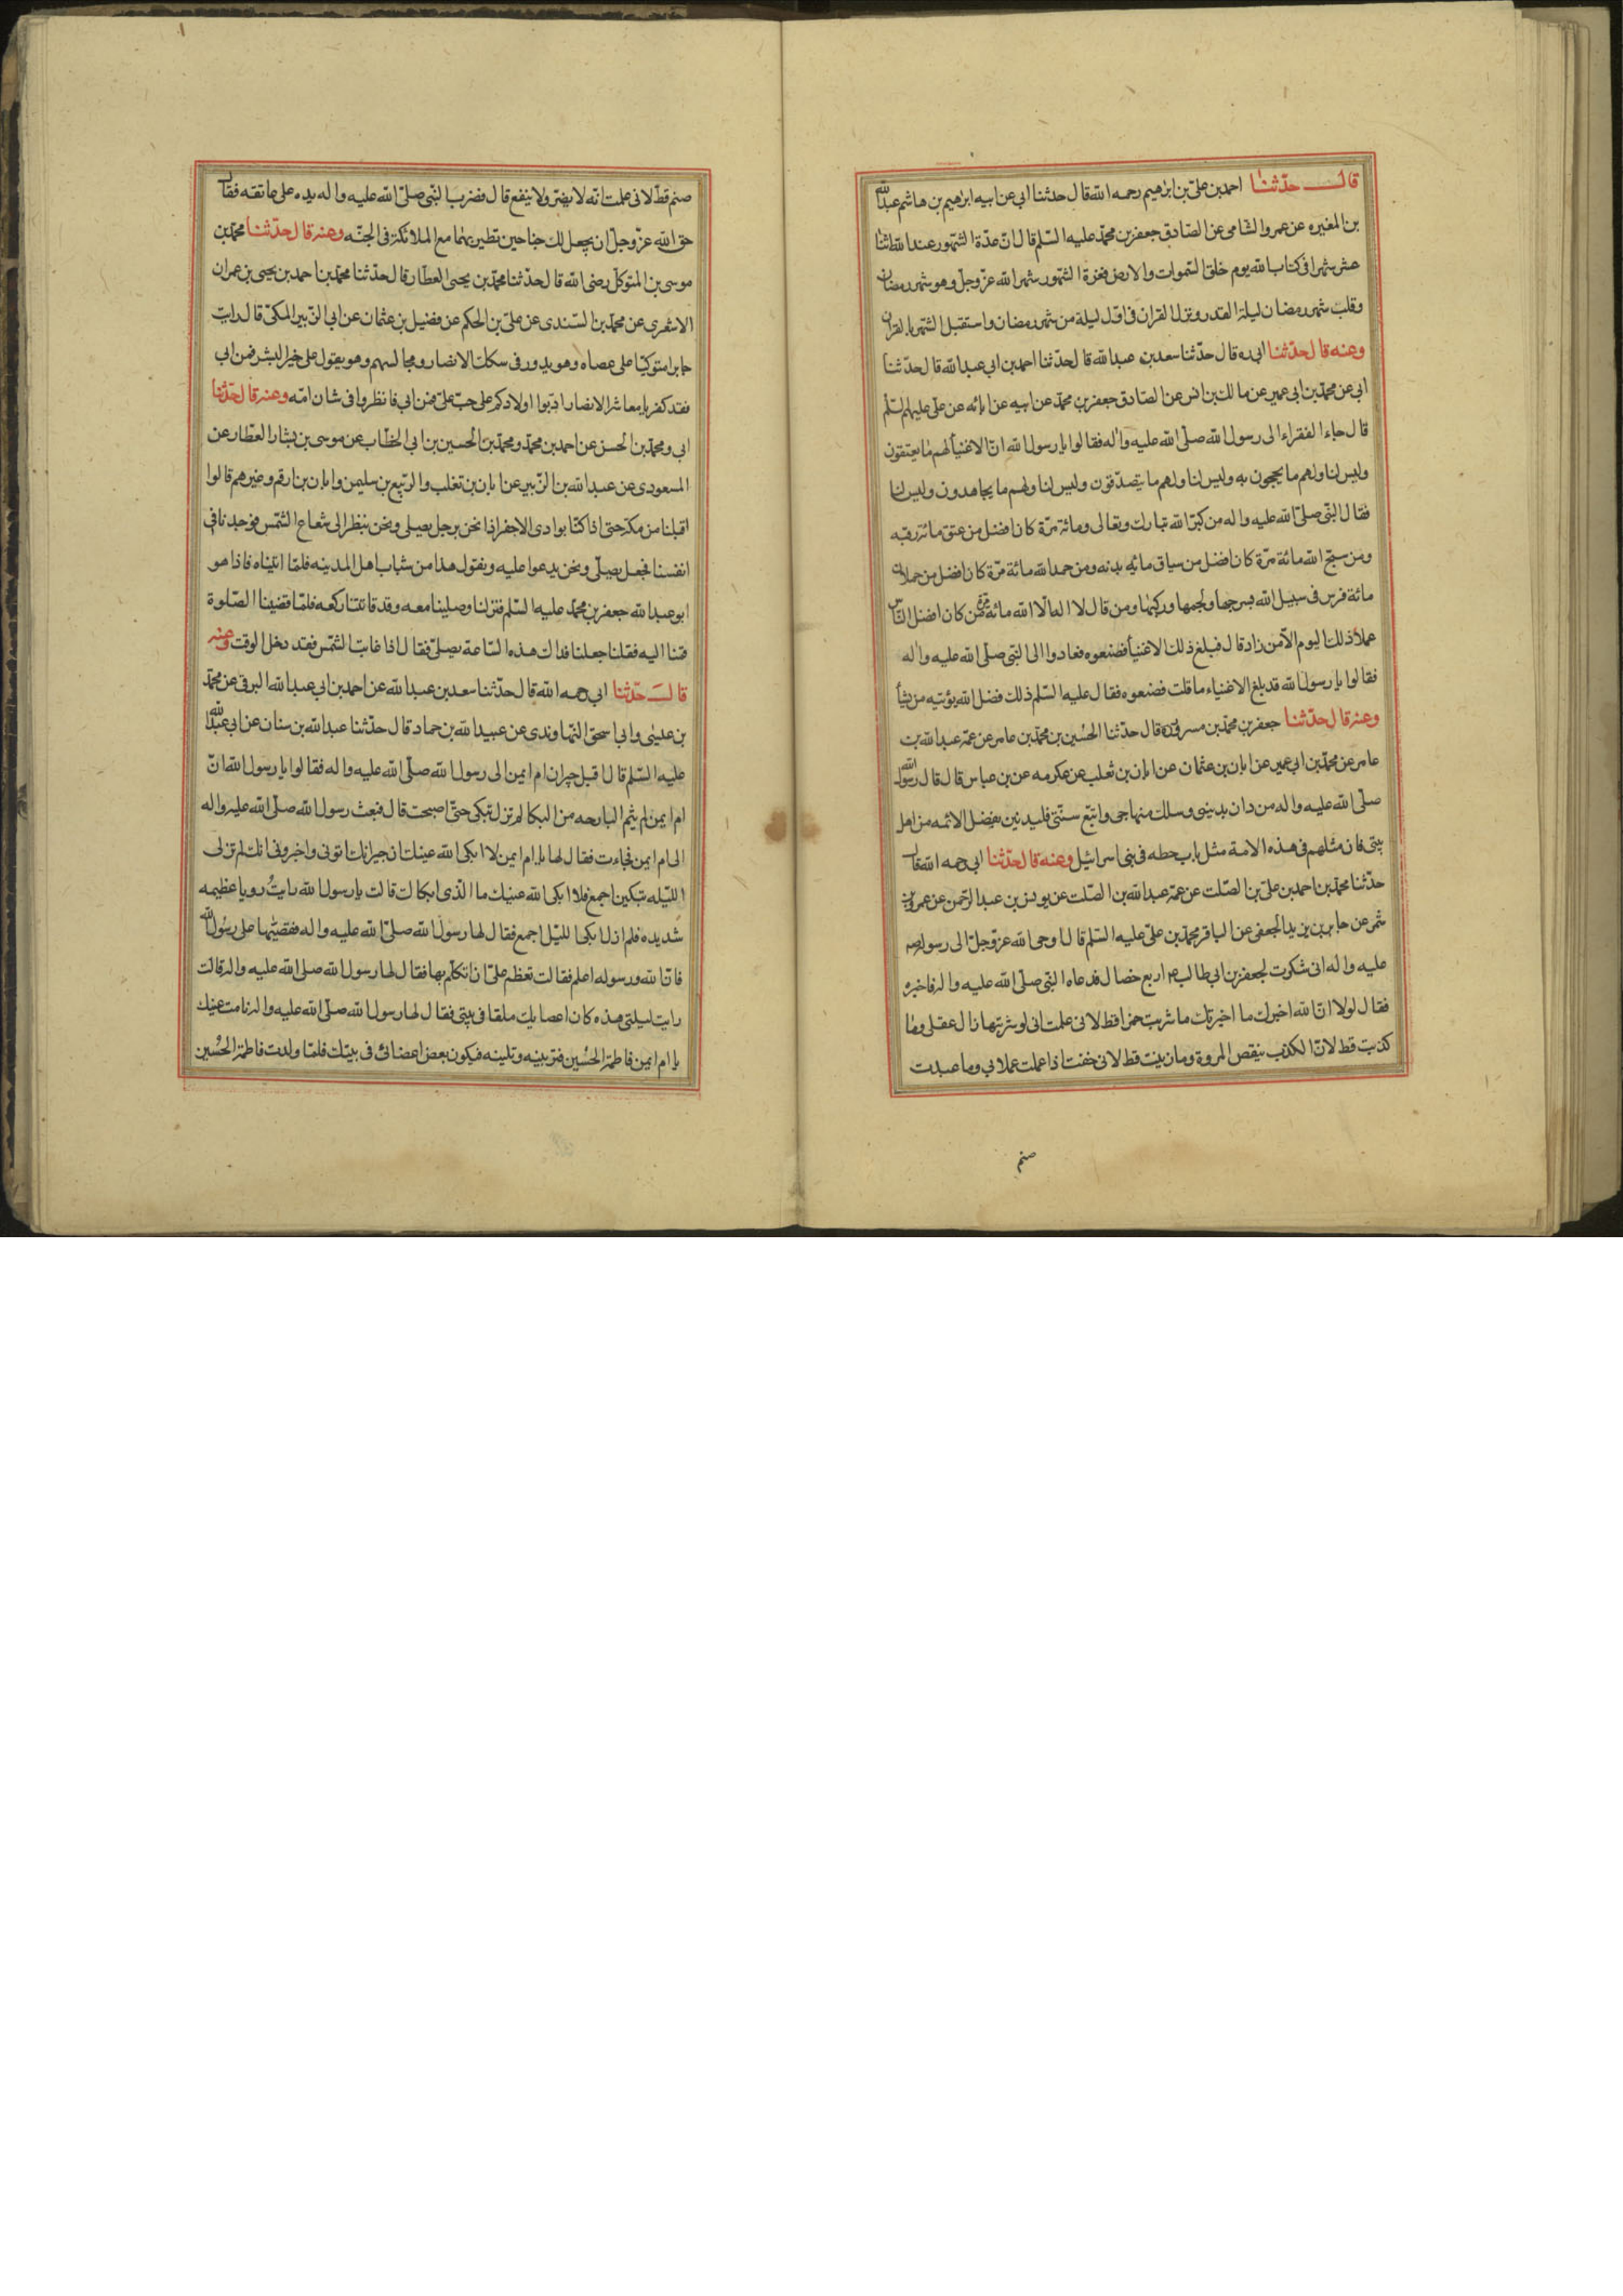 قال حدثنا احمد بن علي بن ابرهيم رحمه الله قال حدثنا ابي عن ابيه ابرهيم بن هاشم عبدالله
بن المغيره عن عمرو الشامى عن الصادق جعفر بن محمد عليه السلم قال انّ عدة الشهور عند الله اثنا
عشر شهرا فى كتاب الله يوم خلق السموات والارض فغرة الشهور شهر الله عزّ وجلّ وهو شهر رمضان
وقلب شهر رمضان ليلة القدر ونزل القران فى اول ليلة من شهر رمضان واستقبل الشهر بالقران
وعنه قال حدثنا ابى ره قال حدّثنا سعد بن عبد الله قال حدّثنا احمد بن ابى عبد الله قال حدثنا
ابى عن محمد بن ابى عمير عن مالك بن انس عن الصادق جعفر بن محمد عن ابيه عن ابائه عن على عليهم السلم
قال جاء الفقراء الى رسول الله صلّى الله عليه واله فقالوا يا رسول الله انّ الاغنيا لهم ما يعتقون
وليس لنا ولهم ما يحجون به وليس لنا ولهم ما يتصدّقون وليس لنا ولهم ما يجاهدون وليس لنا
فقال النبّى صلىّ الله عليه واله من كبّر الله تبارك وتعالى ومائة مرّة كان افضل من عتق مائة رقبه
ومن سبّح الله مائة مرّة كان افضل من سياق مائه بدنه ومن حمد الله مائة مرّة كان افضل من حملان
مائة فرس فى سبيل الله بسرجها ولجمها وركبها ومن قال لا اله الّا الله مائة مرة كان افضل النّاس
عملا ذلك اليوم الّا من زاد قال فبلغ ذلك الاغنيا فصنعوه فعادوا الى النبّى صلّى الله عليه واله
فقالوا يا رسول الله قد بلغ الاغنياء ما قلت فصنعوه فقال عليه السّلم ذلك فضل الله يؤتيه من يشا
وعنه قال حدّثنا جعفر بن محمّد بن مسرور ره قال حدثنا الحسُين بن محمّد بن عامر عن عمه عبد الله بن
عامر عن محمّد بن ابى عمير عن ابان بن عثمان عن ابان بن ثعلب عن عكرمه عن بن عباس قال قال رسول الله
صلّى الله عليه واله من دان بدينى وسلك منهاجى واتبّع سنّتى فليدنين بفضل الائمه من اهل
بيتى فان مثلهم فى هذه الامة مثل باب حطه فى بنى اسرائيل وعنه قال حدّثنا ابى رحمه الله قال
حدّثنا محمّد بن احمد بن علىّ بن الصّلت عن عمّه عبد الله بن الصّلت عن يونس بن عبد الرّحمن عن عمرو بن
شمر عن جابر بن يزيد الجعفى عن الباقر محمّد بن علىّ عليه السّلم قال اوحى الله عزّ وجلّ الى رسوله ص
عليه واله انى شكرت لجعفر بن ابى طالب اربع خصال فدعاه النبّى صلّى الله عليه واله فاخبره
فقال لولا انّ الله اخبرك ما اخبرتك ما شربت خمرا قط لانى علمت انى لو شربتها زال عقلى وما
كذبت قط لانّ الكذب ينقص المروة وما زنيت قط لانى خفت اذا عملت عمل بى وما عبدت
صنم
صنم قطّ لانى علمت انّه لا يضرّ ولا ينفع قال فضرب النبّى صلىّ الله عليه واله يده على عاتقه فقال
حق الله عزّ وجلّ ان يجعل لك جناحين تطير بهما مع الملائكة فى الجنّه وعنه قال حدّثنا محمّد بن
موسى بن المتوكل رضى الله قال حدّثنا محمّد بن يحيى العطار قال حدّثنا محمّد بن احمد بن يحيى بن عمران
الاشعرى عن محمد بن السّندى عن علىّ بن الحكم عن فضيل بن عثمان عن ابى الزّبير المكىّ قال رايت
جابرا متوكيّا على عصاه وهو يدور فى سكك الانصار ومجالسهم وهو يقول على خير البشر فمن ابى
فقد كفر يا معاشر الانصار ادّبوا اولادكم على حبّ علىّ فمن ابى فانظروا فى شان امّه وعنه قال حدّثنا
ابى ومحمّد بن الحسن عن احمد بن محمّد ومحمّد بن الحسين بن ابى الخطّاب عن موسى بن بشار العطّار عن
المسعودى عن عبد الله بن الزّبير عن ابان بن تغلب والرّبيع بن سليمن وابان بن ارقم وغيرهم قالوا
اقبلنا من مكة حتى اذا كنّا بوادى الاجفر اذا نحن برجل يصلى ونحن ننظر الى شعاع الشّمس فوجدنا فى
انفسنا فجعل يصلّى ونحن يدعوا عليه ونقول هذا من شباب اهل المدينه فلمّا اتيناه فاذا هو
ابو عبد الله جعفر بن محمّد عليه السّلم فنزلنا وصلينا معه وقد فاتتنا ركعه فلمّا قضينا الصّلوة
قمنا اليه فقلنا جعلنا فداك هذه السّاعة يصلىّ فقال اذا غابت الشّمس فقد دخل الوقت وعنه
قال حدّثنا ابى رحمه الله قال حدّثنا سعد بن عبد الله عن احمد بن ابى عبد الله البرقى عن محمّد
بن عليسى وابى اسحق النّهاوندى عن عبيد الله بن حماد قال حدّثنا عبد الله بن سنان عن ابى عبد الله
عليه السّلم قال اقبل جيران ام ايمن الى رسول الله صلّى الله عليه واله فقالوا يا رسول الله انّ
ام ايمن لم ينم البارحه من البكا لم تزل تبكى حتىّ اصبحت قال فبعث رسول الله صلّى الله عليه واله
الى ام ايمن فجاءت فقال لها يا ام ايمن لا ابكى الله عينك ان جيرانك اتونى واخبرونى انك لم تزلى
اللّيله تبكين اجمع فلا ابكى الله عينيك ما الّذى ابكاك قالت يا رسول الله رايتُ رويا عظيمه
شديده فلم ازل ابكى الليّل اجمع فقال لها رسول الله صلىّ الله عليه واله فقصيّها على رسُول الله
فانّ الله ورسوله اعلم فقالت تعظم علىّ ان اتكلّم بها فقال لها رسول الله صلى الله عليه واله قالت
رايت ليلتى هذه كان اعضايك ملقا فى بيتى فقال لها رسول الله صلّى الله عليه واله نامت عينك
يا ام ايمن فاطمة الحُسين فتربينه وتلينه فيكون بعض اعضائى فى بيتك فلمّا ولدت فاطمة الحُسين